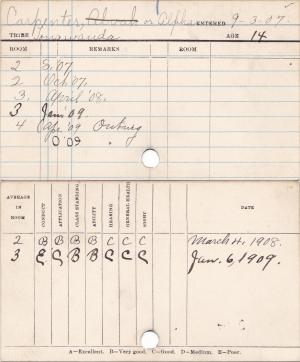 Carpenter, Alvah or Alpha ENTERED 9-3-07.
TRIBE Tonawanda AGE 14
ROOM REMARKS ROOM
2 S. 07.
2 Oct. 07.
3. April '08.
3 Jan' 09.
4 Apr. '09 Outing
O. 09 "
AVERAGE IN ROOM CONDUCT APPLICATION CLASS STANDING ABILITY HEARING GENERAL HEALTH SIGHT DATE
2 B B B B C C C March 4, 1908.
3 C B B C C C Jan. 6, 1909.
A—Excellent. B—Very good. C—Good. D—Medium. E—Poor.